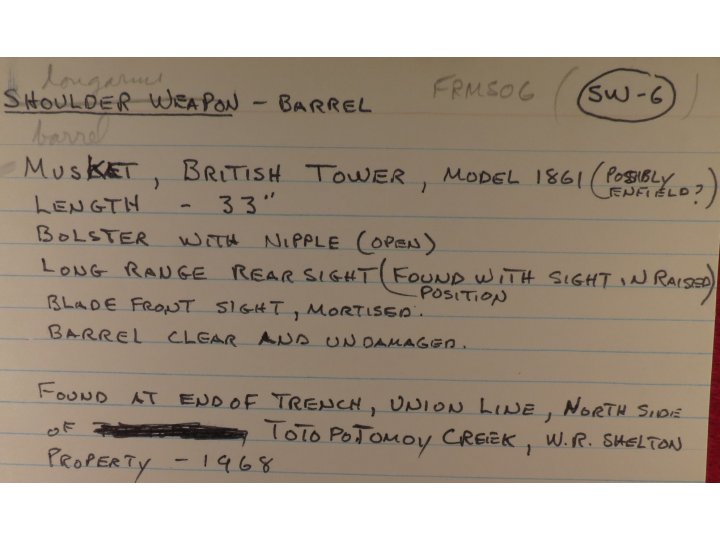 longarms
SHOULDER WEAPON - BARREL FRM506 (SW-6)
barrel
MUSKET, BRITISH TOWER, MODEL 1861 (POSSIBLY ENFIELD?)
LENGTH - 33"
BOLSTER WITH NIPPLE (OPEN)
LONG RANGE REAR SIGHT (FOUND WITH SIGHT IN RAISED POSITION)
BLADE FRONT SIGHT, MORTISED.
BARREL CLEAR AND UNDAMAGED.
FOUND AT END OF TRENCH, UNION LINE, NORTH SIDE
OF TOTOPOTOMOY CREEK, W.R. SHELTON
PROPERTY - 1968